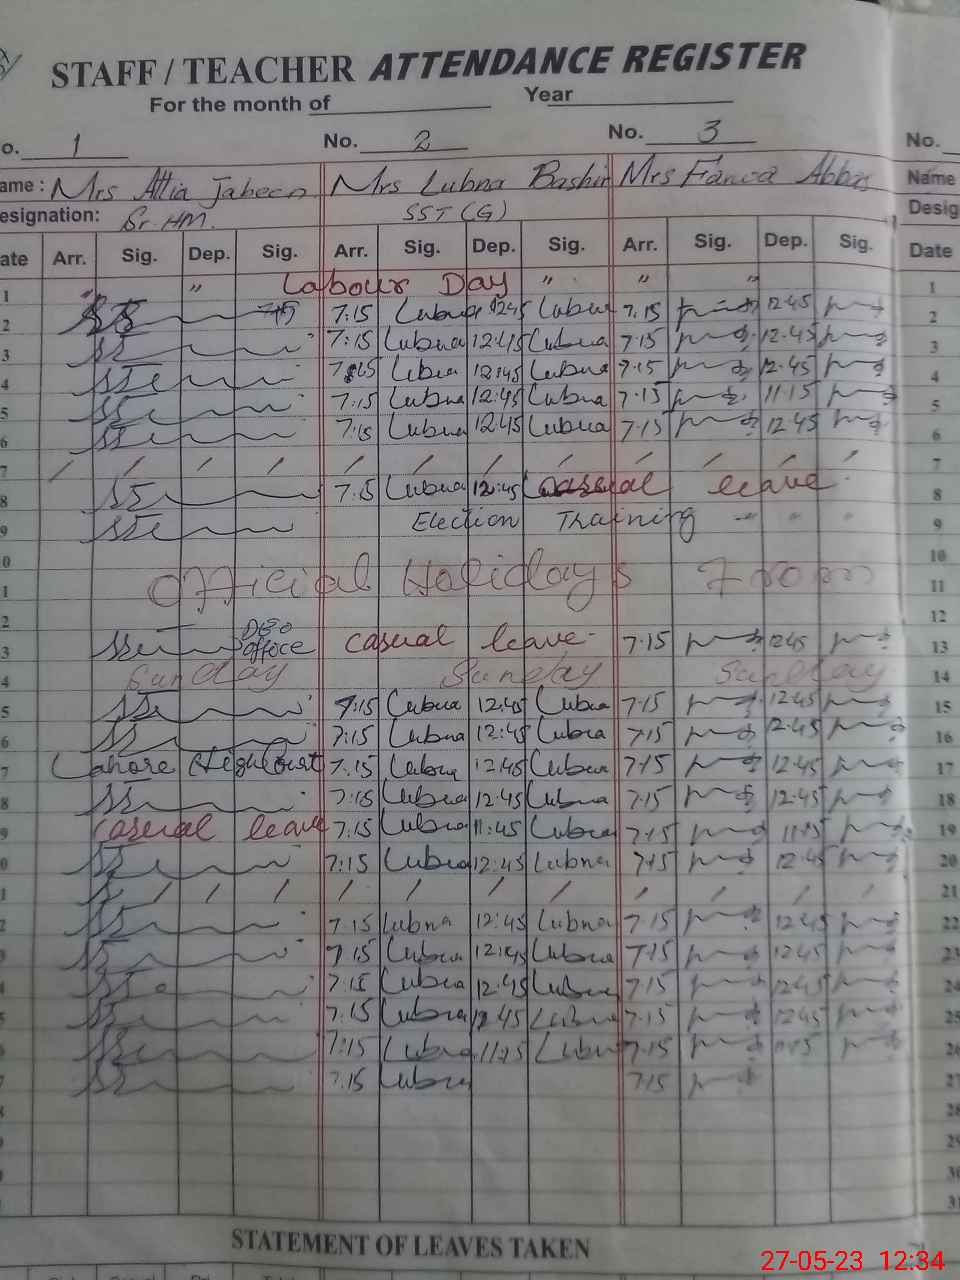 STAFF / TEACHER ATTENDANCE REGISTER
For the month of Year
o. 1 No. 2 No. 3 No.
ame : Mrs Attia Jabeen Mrs Lubna Bashir Mrs Abbas Name
esignation: Sr. HM. SST (G) Desig
ate Arr. Sig. Dep. Sig. Arr. Sig. Dep. Sig. Arr. Sig. Dep. Sig. Date
1 " Labour Day " " " 1
2 7:15 Lubna 12:45 Lubna 7.15 12:45 2
3 7:15 Lubna 12:45 Lubna 7.15 12.45 3
4 7:15 Lubna 12:45 Lubna 7.15 12.45 4
5 7:15 Lubna 12:45 Lubna 7.15 11.15 5
6 7:15 Lubna 12.45 Lubna 7.15 12.45 6
7 / / / / / / / / / / / / 7
8 7:15 Lubna 12:45 casual leave 8
9 Election Training " " " 9
0 10
1 Official Holidays 11
2 12
3 DEO office casual leave 7.15 12.45 13
4 Sunday Sunday Sunday 14
5 7:15 Lubna 12:45 Lubna 7.15 12.45 15
6 7:15 Lubna 12:45 Lubna 7.15 12.45 16
7 Lahore High Court 7.15 Lubna 12:45 Lubna 7.15 12.45 17
8 7:15 Lubna 12:45 Lubna 7.15 12.45 18
9 casual leave 7:15 Lubna 11:45 Lubna 7.15 19
0 7:15 Lubna 12:45 Lubna 7.15 12.45 20
1 / / / / / / / / / / / 21
2 7.15 Lubna 12:45 Lubna 7.15 12.45 22
7.15 Lubna 12:45 Lubna 7.15 12.45 23
7.15 Lubna 12.45 Lubna 7.15 12.45 24
5 7.15 Lubna 12.45 Lubna 7.15 12.45 25
7:15 Lubna 11:15 Lubna 7.15 26
7 7.15 Lubna 7.15 27
8 28
29
30
31
STATEMENT OF LEAVES TAKEN
27-05-23 12:34